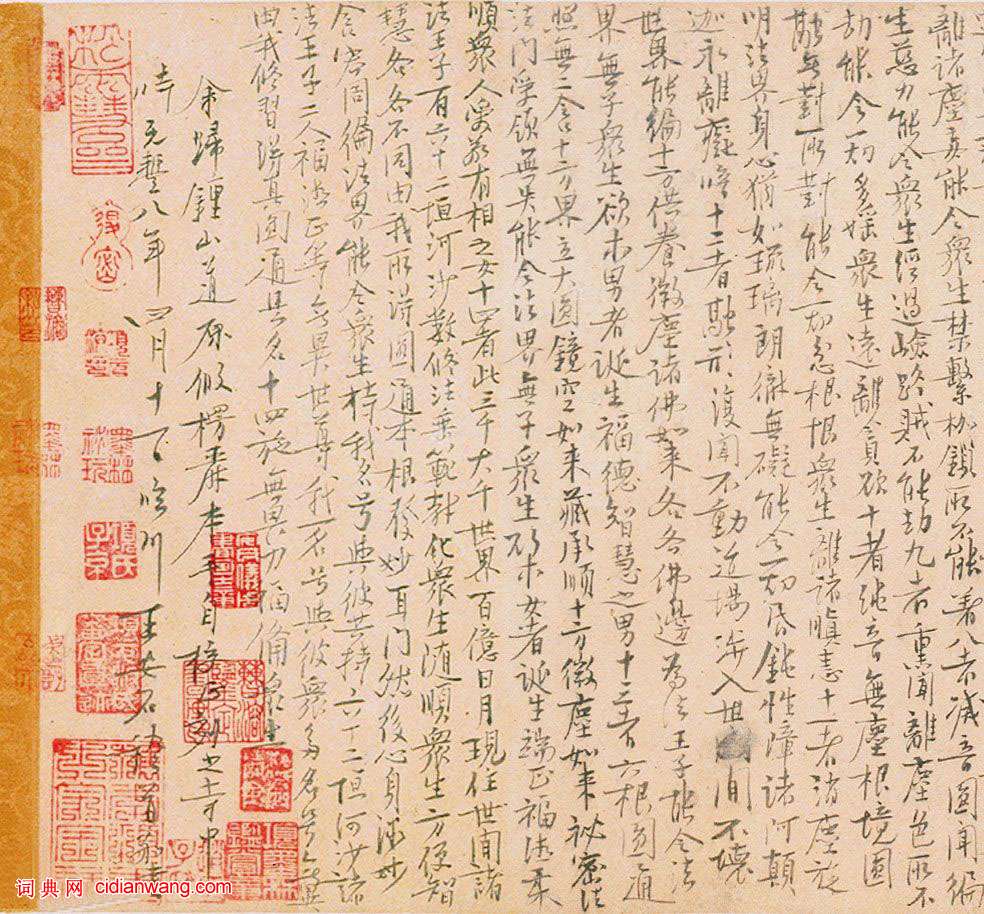 離諸塵妄能令衆生禁繫枷鎖所不能著八者滅音圓聞徧
生慈力能令衆生經過嶮路賊不能劫九者熏聞離塵色所不
劫能令一切多婬衆生遠離貪欲十者純音無塵根境圓
融無對所對能令一切忿根恨衆生離諸瞋恚十一者消塵旋
明法界身心猶如琉璃朗徹無礙能令一切昏鈍性障諸阿顛
迦永離癡暗十二者融形復聞不動道場涉入世間不壞
世界能徧十方供養微塵諸佛如來各各佛邊爲法王子能令法
界無子衆生欲求男者誕生福德智慧之男十三者六根圓通
照無二含十方界立大圓鏡空如来藏承順十方微塵如来祕密法
法門受領無失能令法界無子衆生欲求女者誕生端正福德柔
順衆人愛敬有相之女十四者此三千大千世界百億日月現住世間諸
法王子有六十二恒河沙數修法垂範教化衆生隨順衆生方便智
慧各各不同由我所得圓通本根發妙耳門然後心身微妙
含容周徧法界能令衆生持我名号與彼共持六十二恒河沙諸
法王子二人福德正等無異世尊我一名号與彼衆多名号無異
由我修習得真圓通是名十四施無畏力福備衆生
余歸鍾山道原假楞嚴本手自校正刻之寺中
時元豐八年四月十一日臨川王安石稽首敬書
词典网 cidianwang.com